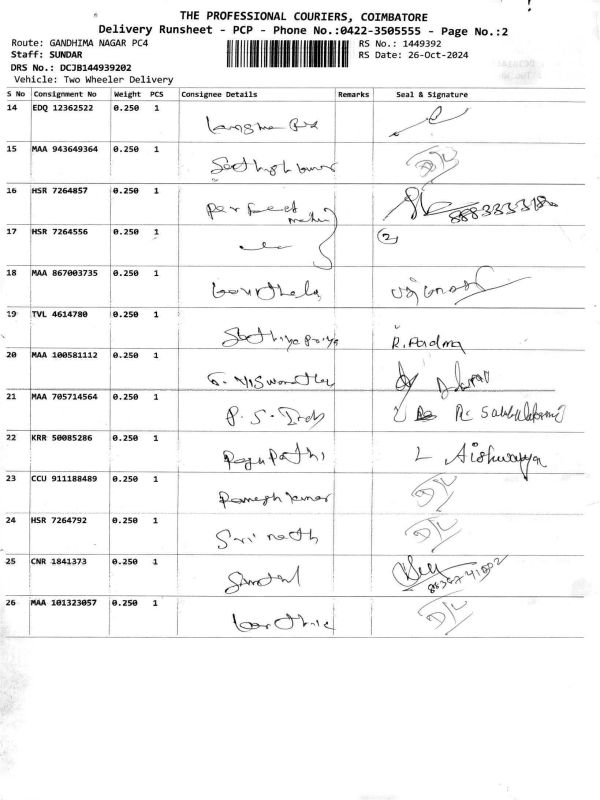 THE PROFESSIONAL COURIERS, COIMBATORE
Delivery Runsheet - PCP - Phone No.:0422-3505555 - Page No.:2
Route: GANDHIMA NAGAR PC4 RS No.: 1449392
Staff: SUNDAR RS Date: 26-Oct-2024
DRS No.: DCJB144939202
Vehicle: Two Wheeler Delivery
S No Consignment No Weight PCS Consignee Details Remarks Seal & Signature
14 EDQ 12362522 0.250 1
15 MAA 943649364 0.250 1 D/L
16 HSR 7264857 0.250 1 Perfect
17 HSR 7264556 0.250 1 2
18 MAA 867003735 0.250 1
19 TVL 4614780 0.250 1 Sathiyapriya R. Padma
20 MAA 100581112 0.250 1
21 MAA 705714564 0.250 1
22 KRR 50085286 0.250 1 Ragupathi L Aishwarya
23 CCU 911188489 0.250 1 Ramesh kumar D/L
24 HSR 7264792 0.250 1 Srinath D/L
25 CNR 1841373 0.250 1
26 MAA 101323057 0.250 1 D/L